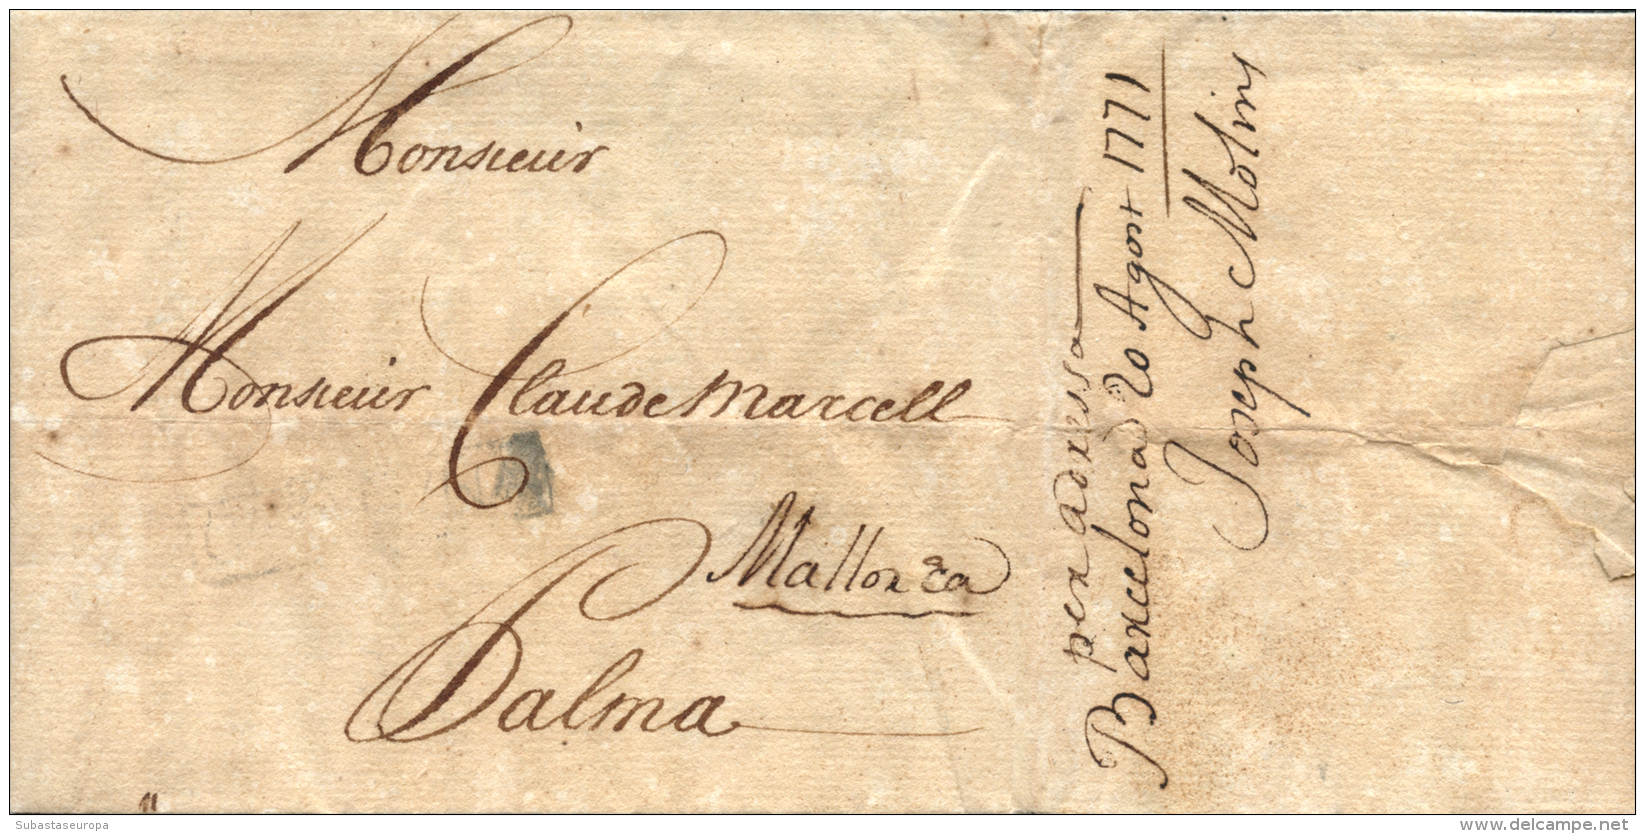 Monsieur
Monsieur Claude Marcell
Mallorca
Palma
per adressa
Barcelona 20 Agost 1771
Joseph Molins
Subastaseuropa
delcampe.net